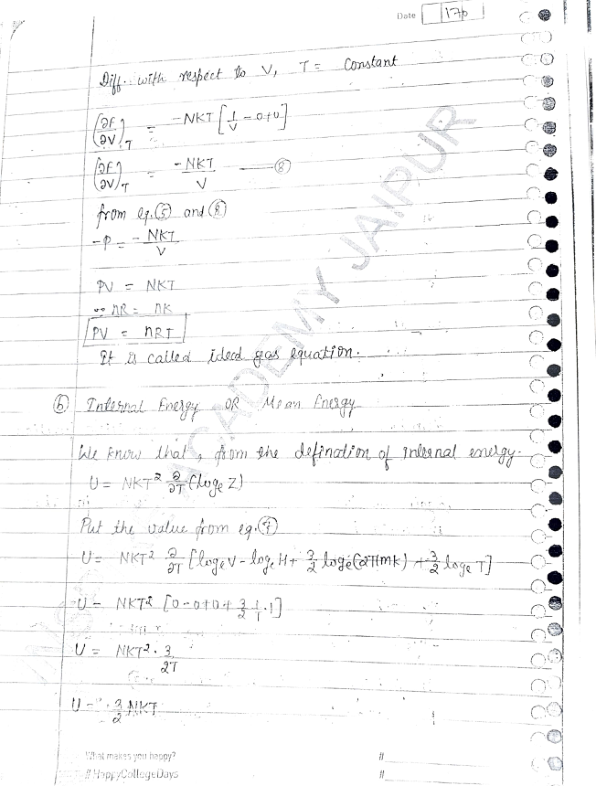 Date 176
Diff. with respect to V, T = Constant
(∂F/∂V)_T = -NKT [1/V - 0+0]
(∂F/∂V)_T = -NKT/V —— (8)
from eq. (5) and (8)
-P = -NKT/V
PV = NKT
∵ nR = nK
PV = nRT
It is called ideal gas equation.
(6) Internal Energy OR Mean Energy
We know that, from the defination of internal energy.
U = NKT² ∂/∂T (loge Z)
Put the value from eq. (7)
U = NKT² ∂/∂T [loge V - loge H + 3/2 loge (2πmk) + 3/2 loge T]
U = NKT² [0-0+0+ 3/2 · 1/T · 1]
U = NKT² · 3/2T
U = 3/2 NKT
What makes you happy?
#HappyCollegeDays
#
#
ACADEMY JAIPUR